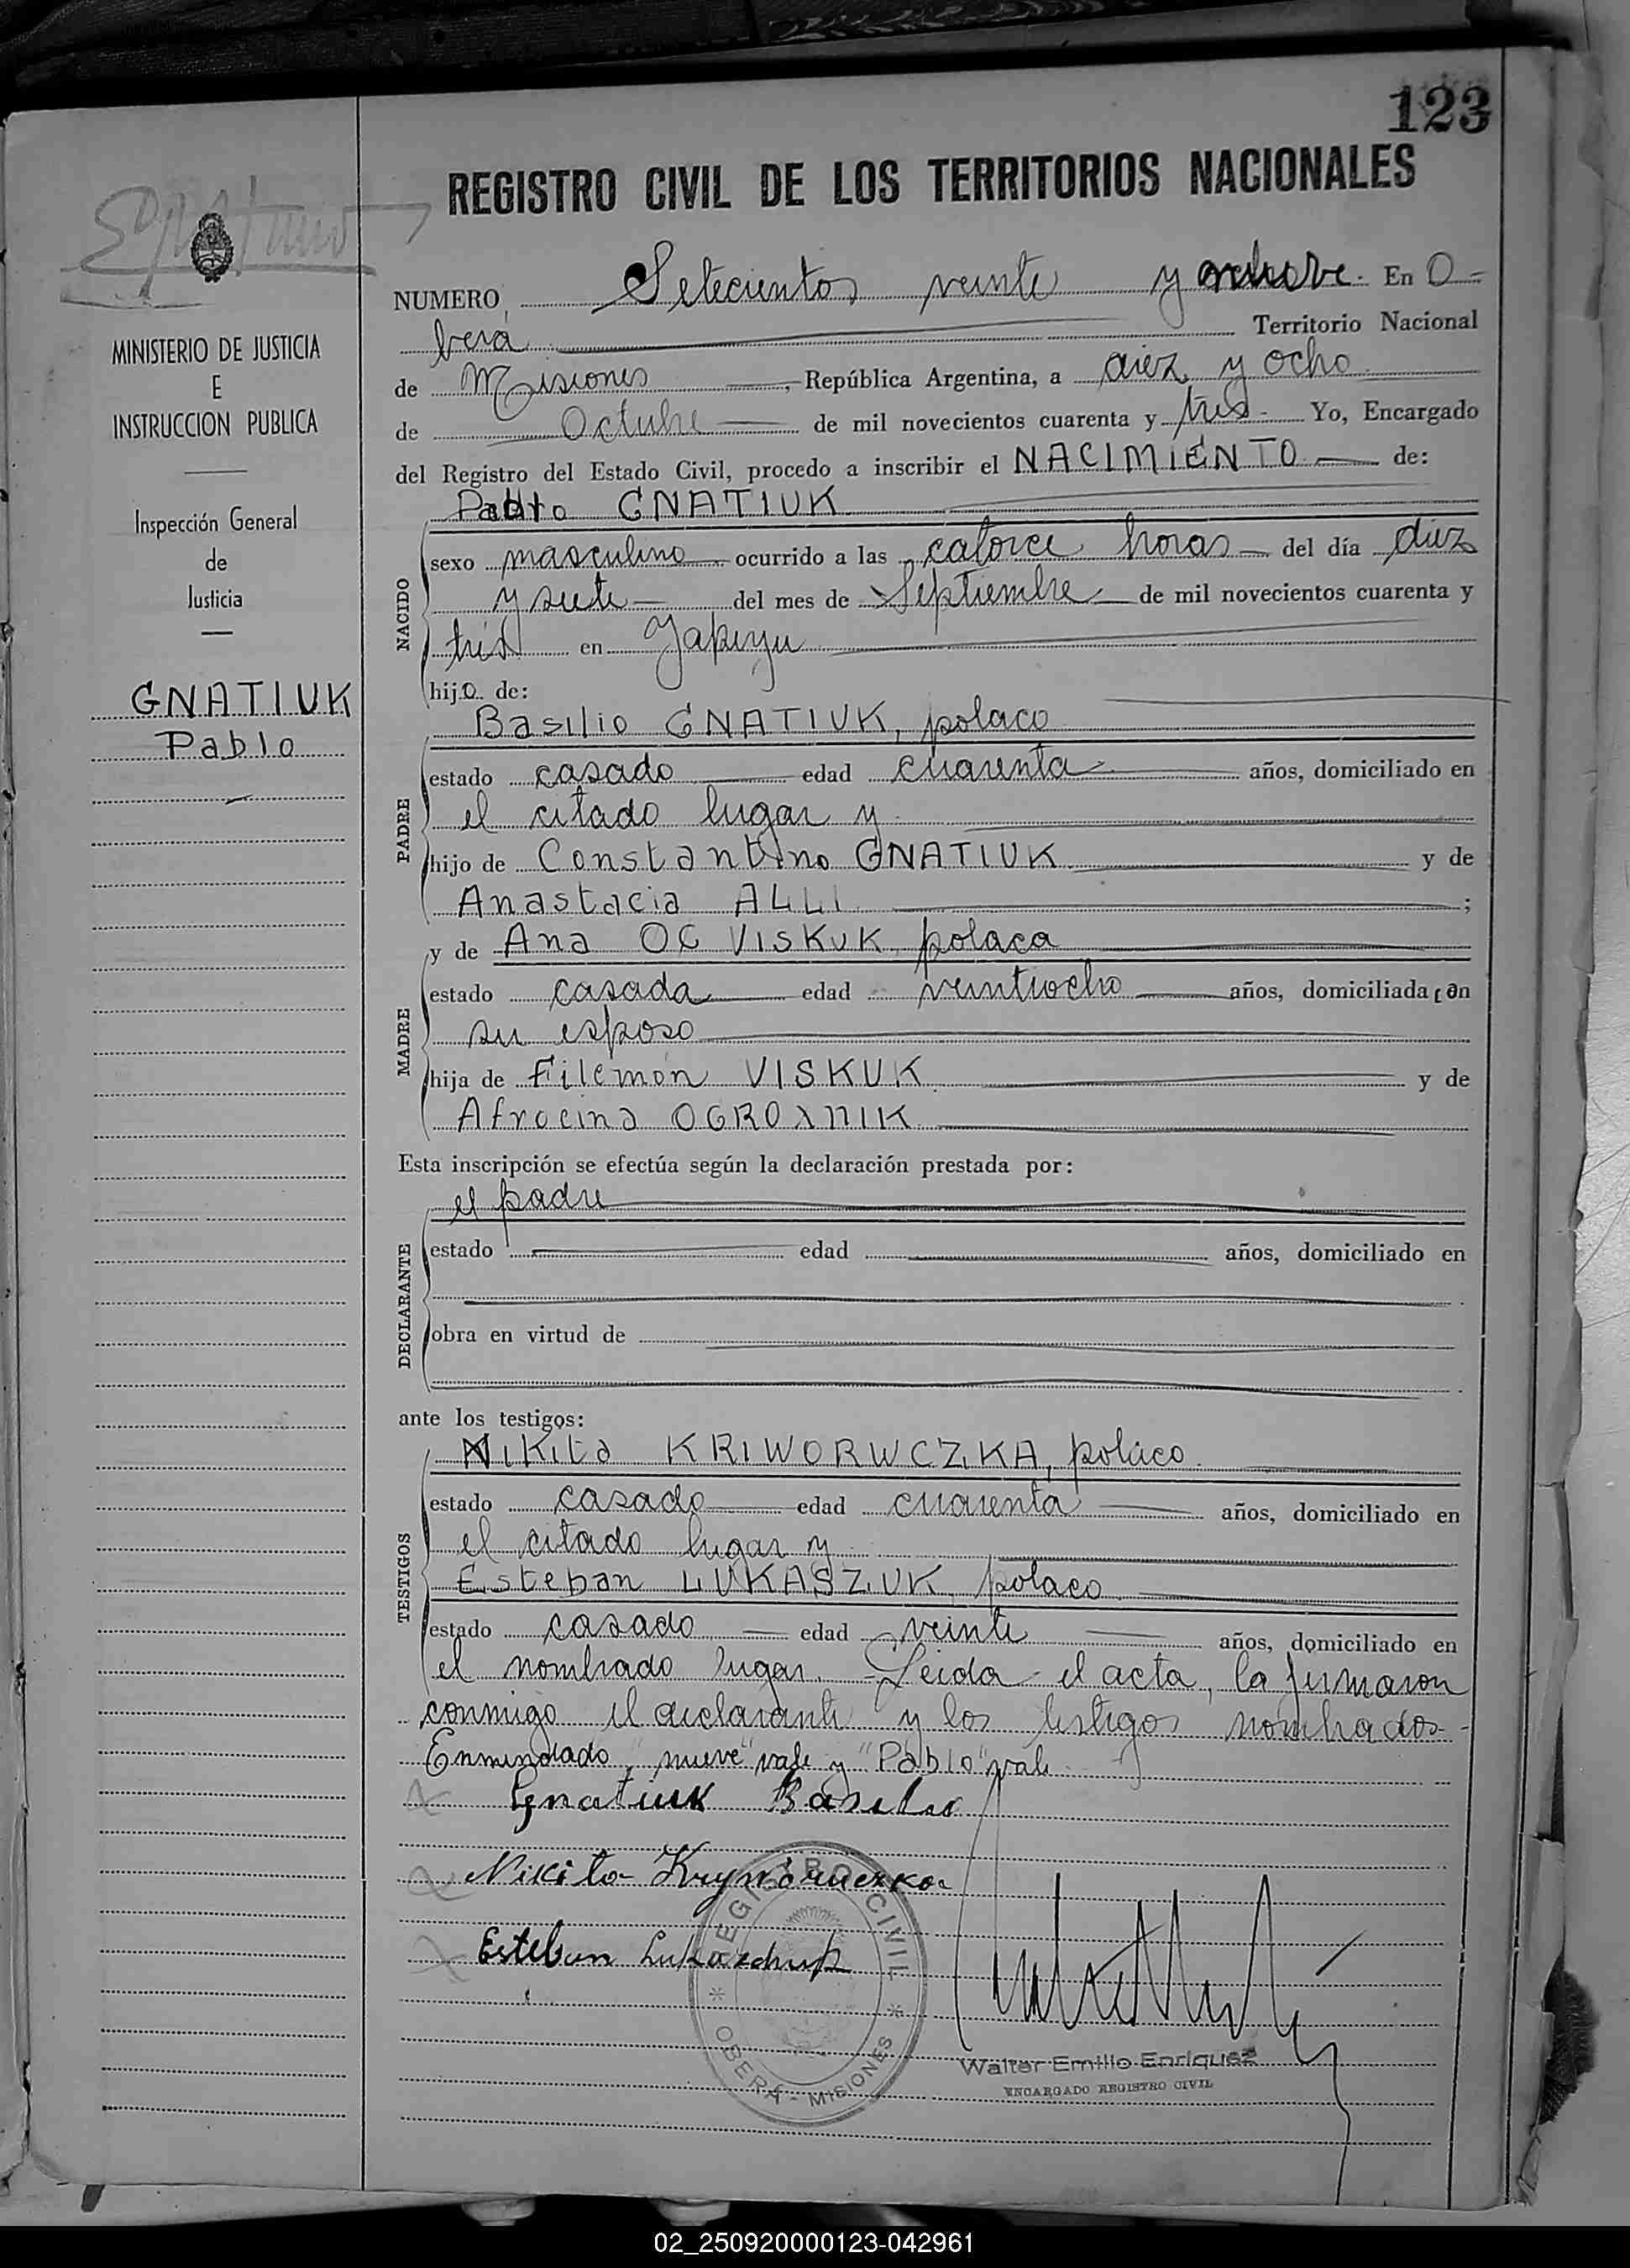 123
REGISTRO CIVIL DE LOS TERRITORIOS NACIONALES
MINISTERIO DE JUSTICIA
E
INSTRUCCION PUBLICA
Inspección General
de
Justicia
GNATIUK
Pablo
NUMERO Setecientos veinte y nueve. En O-
berá Territorio Nacional
de Misiones, República Argentina, a diez y ocho
de Octubre de mil novecientos cuarenta y tres. Yo, Encargado
del Registro del Estado Civil, procedo a inscribir el NACIMIENTO de:
Pablo GNATIUK
NACIDO
sexo masculino ocurrido a las catorce horas del día diez
y siete del mes de Septiembre de mil novecientos cuarenta y
tres en Yapeyu
hijo de:
Basilio GNATIUK, polaco
PADRE
estado casado edad cuarenta años, domiciliado en
el citado lugar y
hijo de Constantino GNATIUK y de
Anastacia ALLI ;
y de Ana OG VISKUK, polaca
MADRE
estado casada edad veintiocho años, domiciliada con
su esposo
hija de Filemón VISKUK y de
Afrocina
Esta inscripción se efectúa según la declaración prestada por:
el padre
DECLARANTE
estado edad años, domiciliado en
obra en virtud de
ante los testigos:
Nikita KRIWORWCZKA, polaco.
TESTIGOS
estado casado edad cuarenta años, domiciliado en
el citado lugar y
Esteban LUKASZUK, polaco
estado casado edad veinte años, domiciliado en
el nombrado lugar. Leida el acta, la firmaron
conmigo el declarante y los testigos nombados-
Enmendado "nueve" vale y "Pablo" vale
Ignatiuk Basilio
Nikita
Esteban
REGISTRO CIVIL
OBERÁ - MISIONES
Walter Emilio Enriquez
ENCARGADO REGISTRO CIVIL
02_250920000123-042961